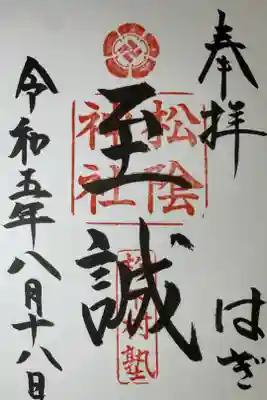 奉拝
はぎ
松陰
神社
至誠
松下村塾
令和五年八月十八日